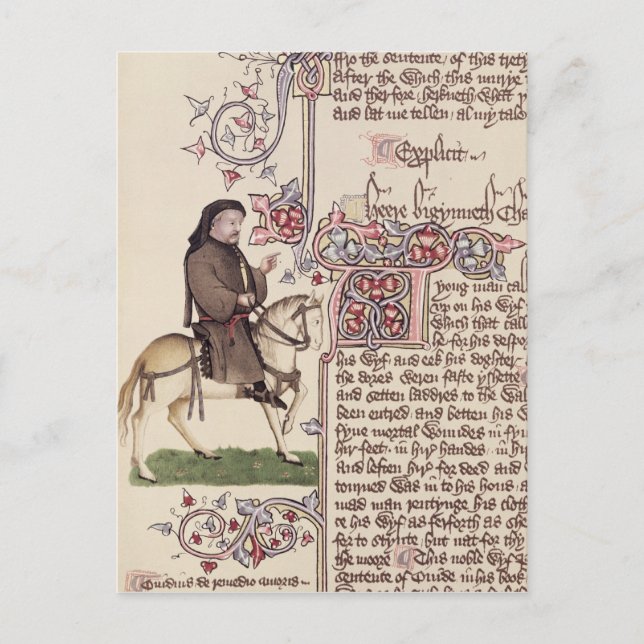 ffro the sentence / of this trety
After the which / this murye
And therfore / herkneth what y
And lat me tellen / al my tale
Explicit
Heere bigynneth Cha
A yong man cal
vp on his wyf
Which that call
he for his despor
his wyf and eek his doghter
the dores weren faste yshette
and setten laddres to the Wal
been entred and betten his W
fyue mortal Woundes in fyu
hir feet / in hir handes / in hir
and leften hir for deed and W
torned Was in to his hous / a
mad man rentynge his cloth
ce his Wyf as ferforth as she
for to stynte / but nat for thy
the moore ¶ This noble Wyf P
sentence of Ouide in his book
¶ Ouidius de remedio amoris